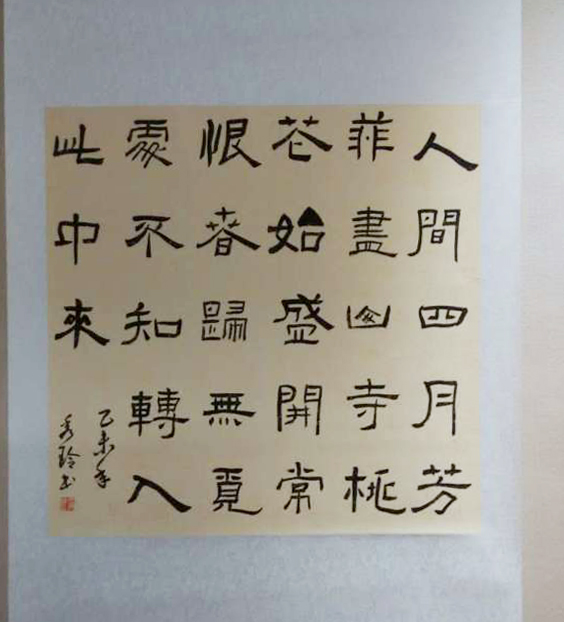 人間四月芳
菲盡凶寺桃
芲始盛開常
恨春歸無覓
處不知轉入
此中來
乙未年
秀玲书